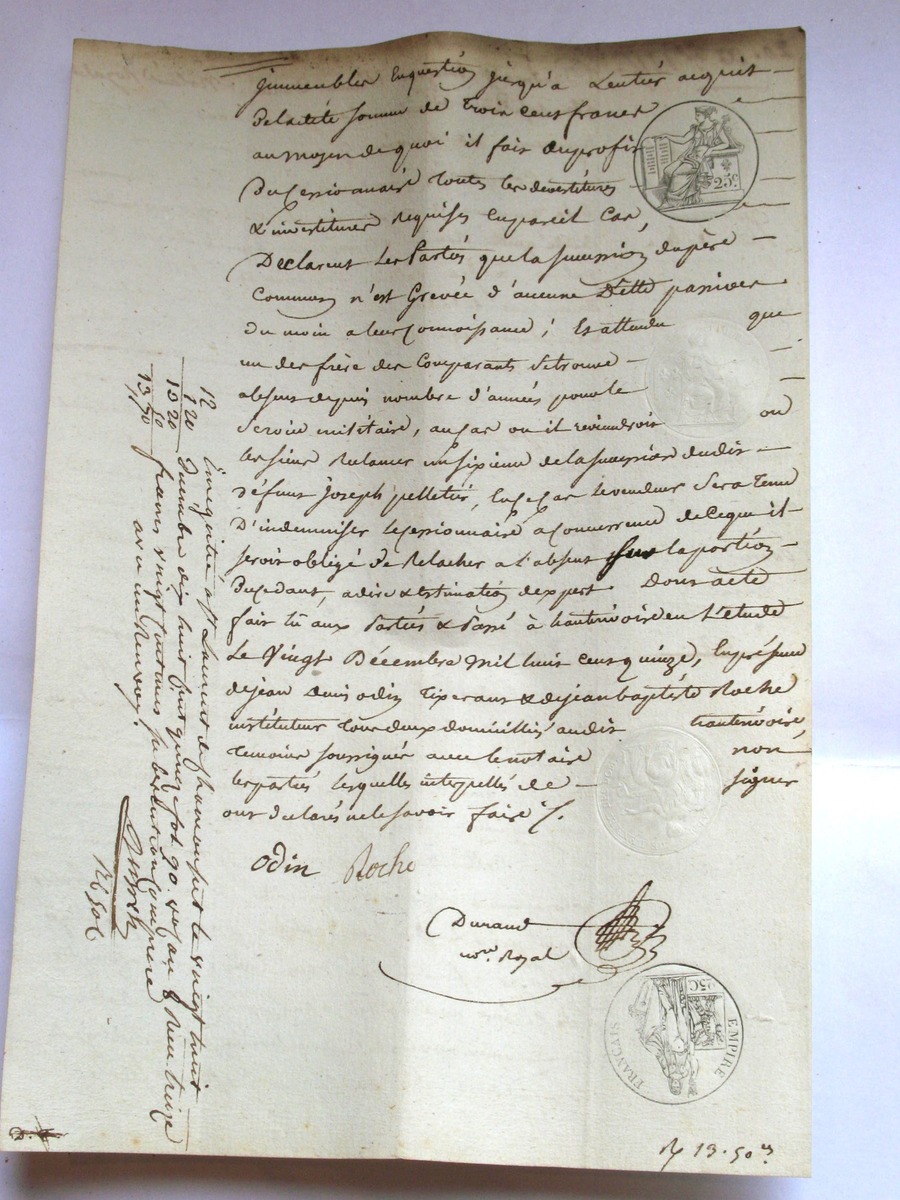 immeubles en question jusqu'à L'entier acquit
De ladite somme de Trois cens francs
au moyen de quoi il fait au profit
Du Cessionnaire Toutes les devestitures
& investitures Requises En pareil Cas,
Déclarent Les Partiés que la succession du père
Commun n'est Grevée d'aucune Dette passives
du moin a leur Connoissance; Et attendu que
un des frère des Comparants se trouve
absent depuis nombre d'années pour le
service militaire, au cas ou il reviendroit ou
les siens Reclamer un sixieme de la succession dudit
défunt joseph pelletier, En ce Cas le vendeur Sera Tenu
D'indemniser le Cessionnaire a Concurrence de Ce que il
seroit obligé de Relacher a l'absent sur la portion
Du Cedant, a dire & Estimation d'expert Dont acte
fait lu aux Partiés & Passé à hautrivoire en L'etude
Le Vingt Décembre mil huit cent quinze, En présence
de jean Denis odin Tixerant & de jean baptiste Roche
instituteur Tous deux domiciliés audit hautrivoire,
Temoins soussignés avec le notaire non
les partiés lesquelles interpellés de signer
ont declarés ne le savoir faire /.
Odin Roche
Durand
nore. Royal
25c.
EMPIRE FRANÇAIS
25C
R 13.50cs
12
1 20
13 20
13,50
Enregistré à St Laurent de Chamousset le vingt huit
Decembre dix huit cent quinze fol. 90.
francs vingt centimes
avec un Renvoy.
D.